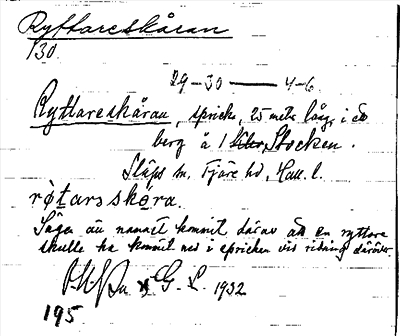 Ryttareskåran
130.
29-30 — 4-6.
Ryttareskåran, spricka, 25 meter lång, i ett
berg å Stocken.
Släps sn, Fjäre hd, Hall. l.
rǫ̀tarsskǫra.
Sägen att namnet kommit därav att en ryttare
skulle ha kommit ned i sprickan vid ridning däröver.
G. L. 1932
195